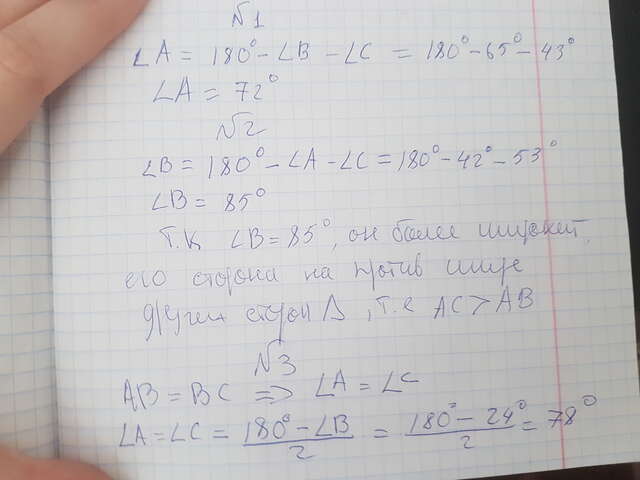 №1
∠A = 180° - ∠B - ∠C = 180° - 65° - 43°
∠A = 72°
№2
∠B = 180° - ∠A - ∠C = 180° - 42° - 53°
∠B = 85°
т.к ∠B = 85°, он более широкий,
его сторона на против шире
других сторон Δ, т.е AC > AB
№3
AB = BC => ∠A = ∠C
∠A = ∠C = (180° - ∠B)/2 = (180° - 24°)/2 = 78°